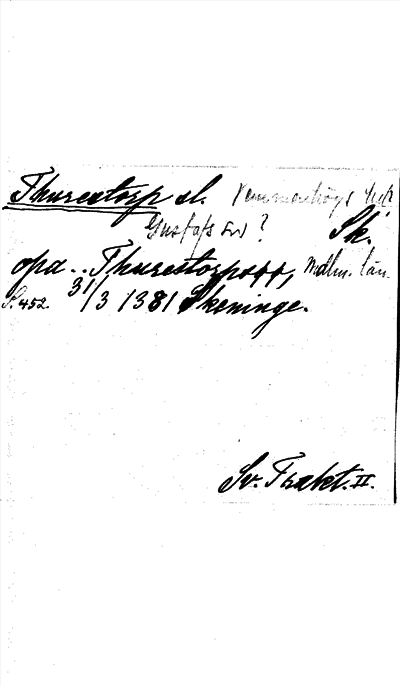 Thurestorp sl. Vemmenhögs hd
Gustafs sn ? Sk.
opa .. Thurestorpstt, Mdlm. län
S. 452. 31/3 1381 Skeninge.
Sv. Trakt. II.